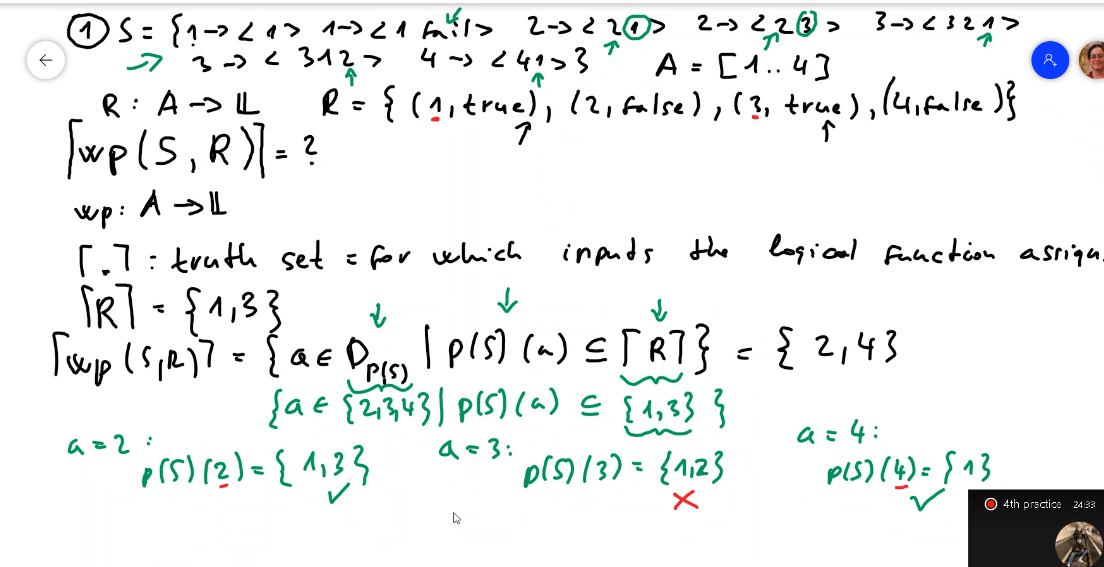 ① S = {1→<1> 1→<1 fail> 2→<21> 2→<23> 3→<321>
3→<312> 4→<41>} A = [1..4]
R : A → 𝕃 R = {(1,true), (2,false), (3,true), (4,false)}
⌈wp(S,R)⌉ = ?
wp: A → 𝕃
⌈.⌉ : truth set = for which inputs the logical function assign
⌈R⌉ = {1,3}
⌈wp(S,R)⌉ = {a ∈ D_p(S) | p(S)(a) ⊆ ⌈R⌉} = {2,4}
{a ∈ {2,3,4} | p(S)(a) ⊆ {1,3}}
a=2: a=3: a=4:
p(S)(2) = {1,3} ✓ p(S)(3) = {1,2} ✗ p(S)(4) = {1} ✓
4th practice 24:33